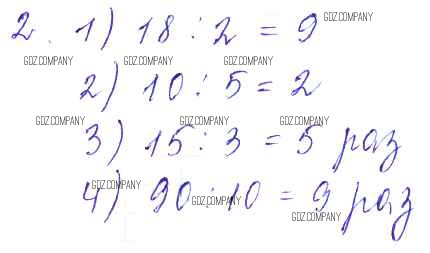 2. 1) 18 : 2 = 9 GDZ.COMPANY
GDZ.COMPANY GDZ.COMPANY GDZ.COMPANY
2) 10 : 5 = 2
GDZ.COMPANY GDZ.COMPANY GDZ.COMPANY
3) 15 : 3 = 5 раз
GDZ.COMPANY
4) 90 : 10 = 9 раз
GDZ.COMPANY
GDZ.COMPANY